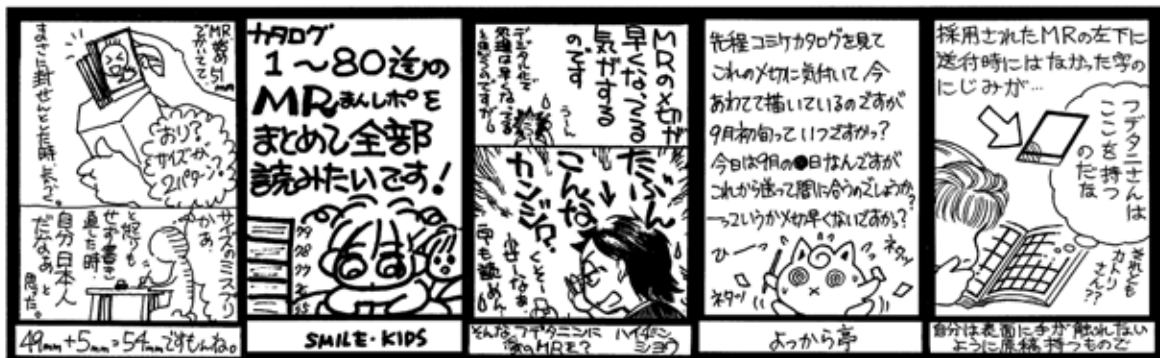 MR
51
mm
でかいて
まさに封せんとした時、
おり?
サイズが
2パターン?
サイズのミスプリ
かぁ
と怒りも
せず書き
直した時、
自分日本人
だなぁと
思った。
49mm+5mm=54mmですもんね。
カタログ
1〜80迄の
MRまんレポを
まとめて全部
読みたいです!
SMILE・KIDS
MRの〆切が
早くなってる
気がする
のです
デジタル化で
処理は早くなってる
と思うのですが
うーん
たぶん
こんな
カンジ?
くそー
せーしなぁ
ハイダニ
ショウ
先程コミケカタログを見て
これの〆切に気付いて今
あわてて描いているのですが
9月初旬っていつですかっ?
今日は9月の●日なんですが
これから送って間に合うのでしょうか?
ーっていうか〆切早くないですかっ?
ひーーっ
ネタッ
ネタッ
よっから亭
採用されたMRの左下に
送付時にはなかった字の
にじみが…
フデタニさんは
ここを持つ
のだな
それとも
カトリ
さん??
自分は表面に手が触れない
ように原稿持つもので